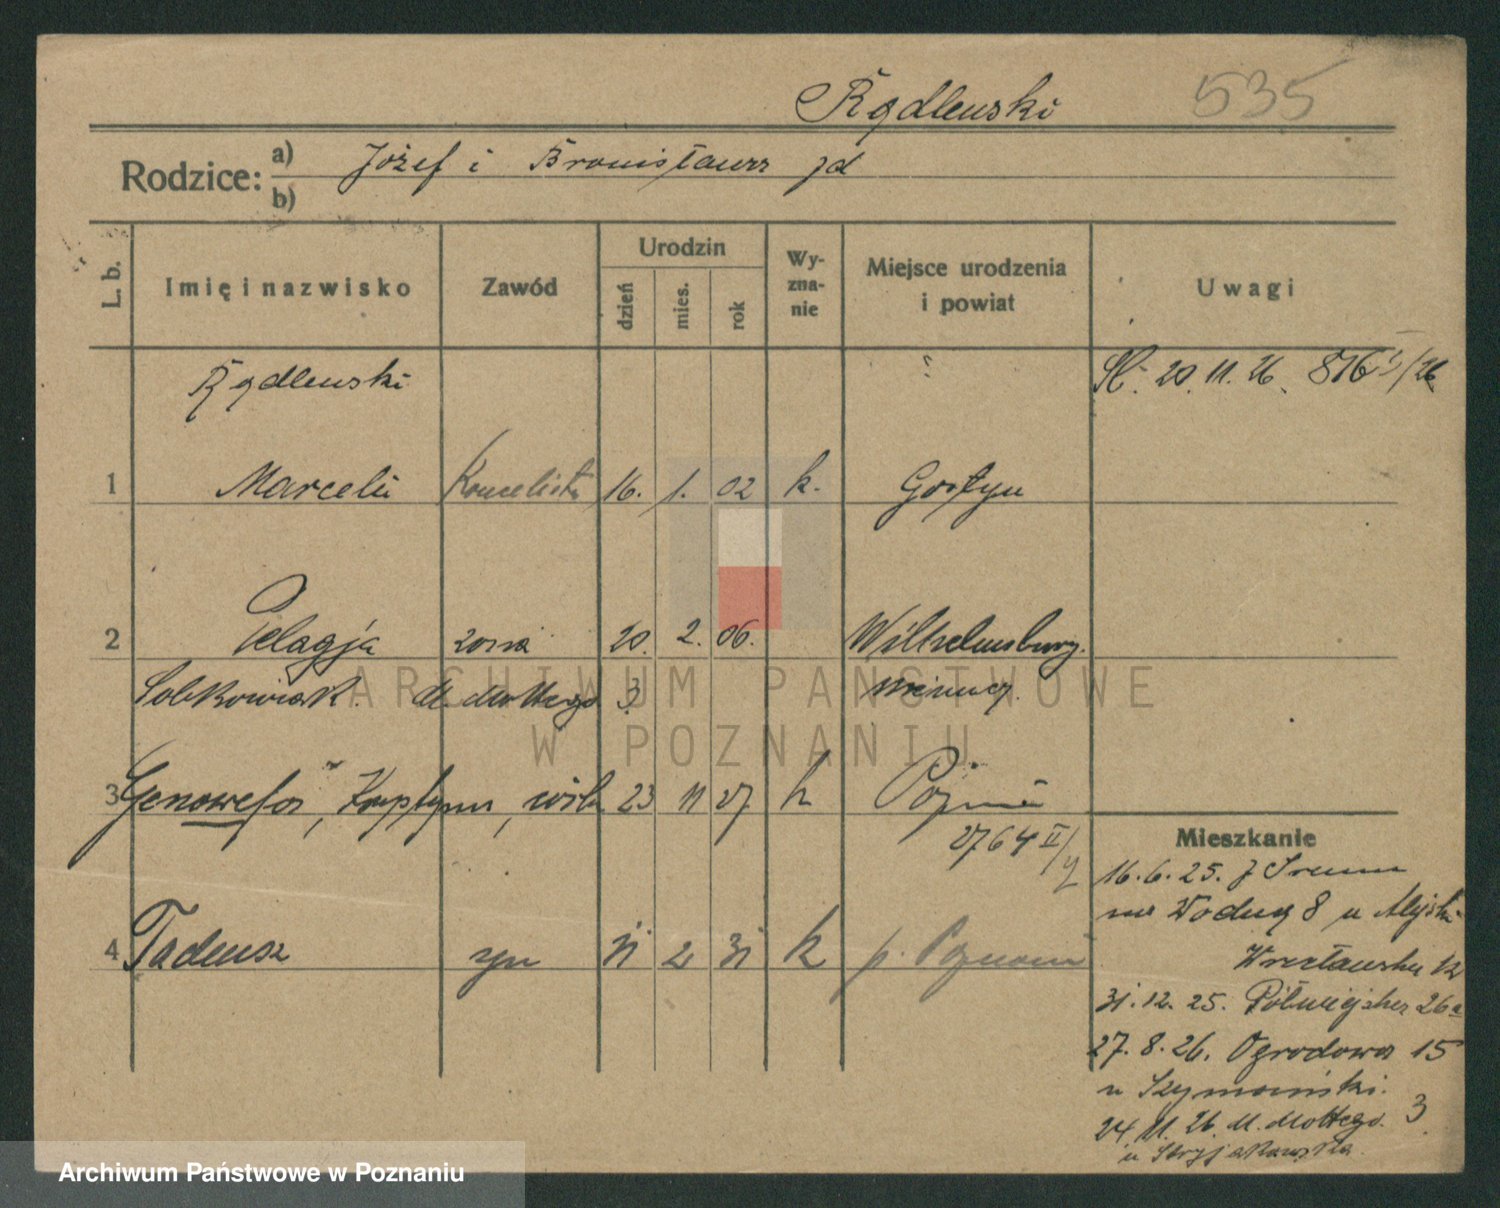 535
Rądlewski
Rodzice: a) Józef i Bronisława jd
b)
L. b. Imię i nazwisko Zawód Urodzin dzień mies. rok Wy-zna-nie Miejsce urodzenia i powiat Uwagi
Rądlewski 20. 11. 26. 816
1 Marceli Kancelista 16. 1. 02 k. Gostyn
2 Pelagja żona 20. 2. 06. Wilhelmsburg.
Sobkowiak. M. Mottego 3 Niemcy.
3 Genowefa, Krystyna, 23 11 27 k Poznań
2764 II/
4 Tadeusz syn 31 2 31 k p. Poznań
Mieszkanie
16. 6. 25. z Śremu
na Wodną 8 u
Wrocławska 12
31. 12. 25. Półwiejska 26a
27. 8. 26. Ogrodowa 15
u Szymański.
24 11. 26. M. Mottego. 3
u Stryjakowska.
ARCHIWUM PAŃSTWOWE
W POZNANIU
Archiwum Państwowe w Poznaniu